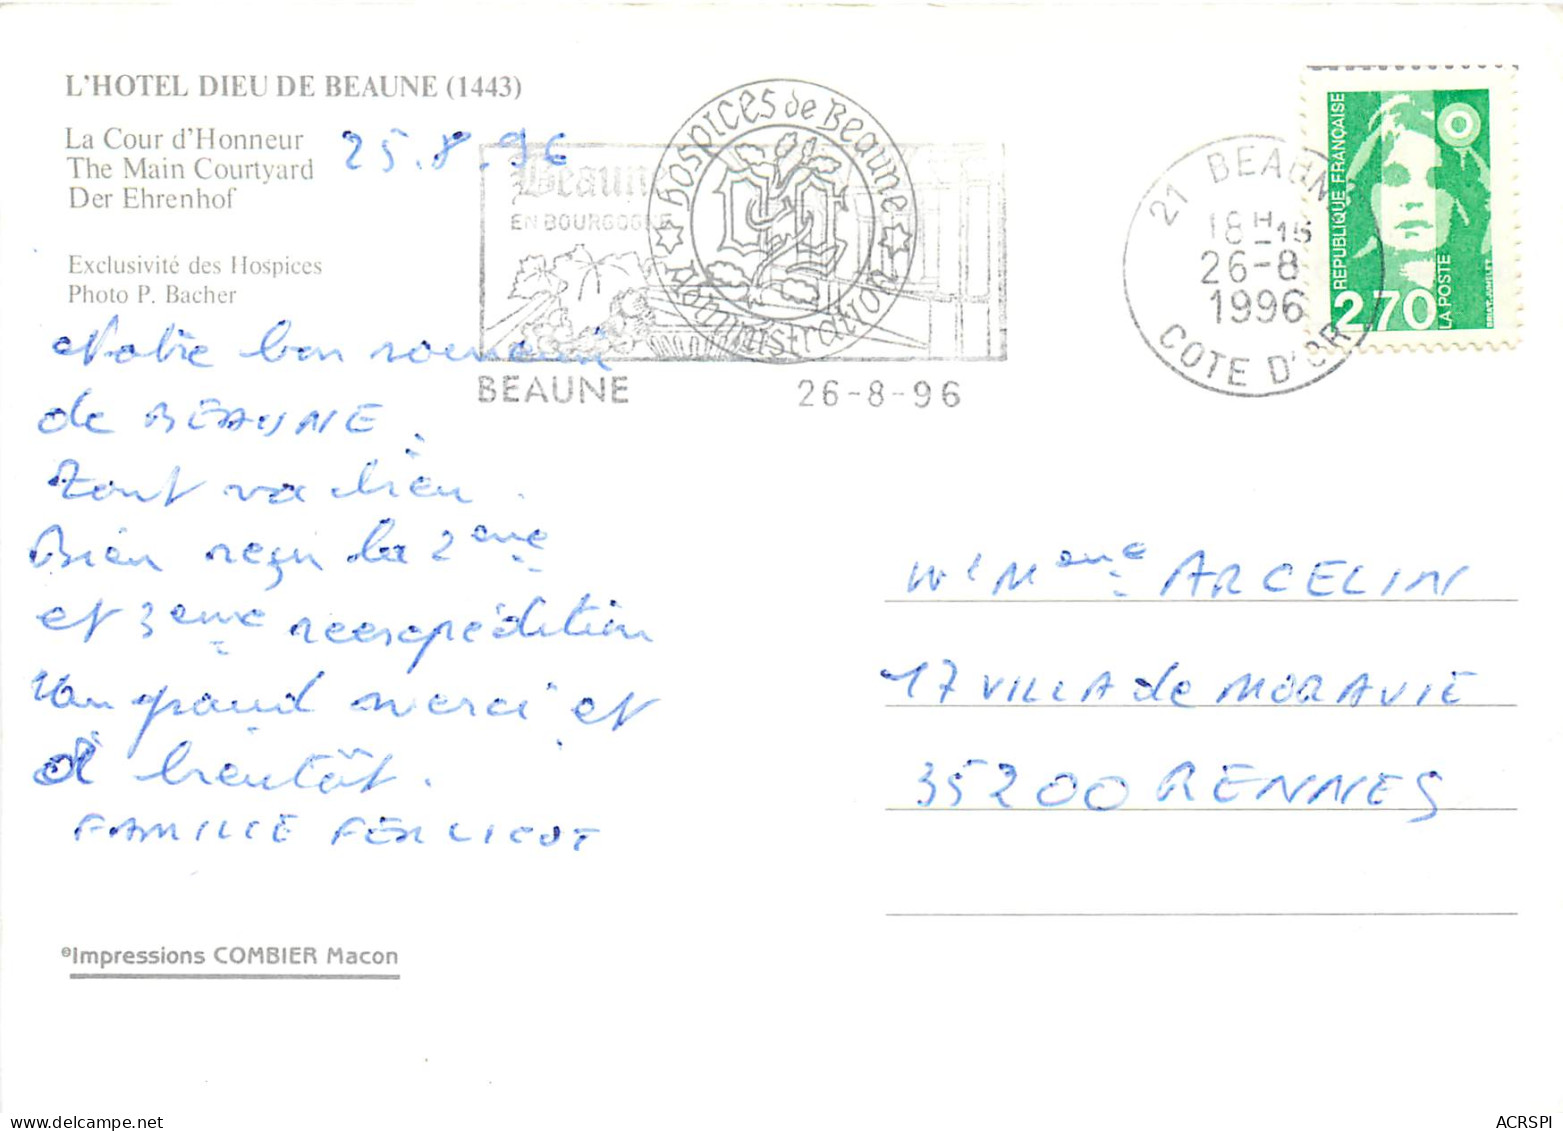 L'HOTEL DIEU DE BEAUNE (1443)
La Cour d'Honneur
The Main Courtyard
Der Ehrenhof
25.8.96
Exclusivité des Hospices
Photo P. Bacher
Notre bon souvenir
de BEAUNE.
Tout va bien.
Bien reçu la 2eme
et 3eme reexpédition
Un grand merci et
à bientôt.
FAMILLE
©Impressions COMBIER Macon
Beaune
EN BOURGOGNE
hospices de Beaune
Administration
BEAUNE 26-8-96
21 BEAUNE
18H15
26-8
1996
COTE D'OR
REPUBLIQUE FRANÇAISE
2,70
LA POSTE
Mme ARCELIN
17 VILLA de MORAVIE
35200 RENNES
ACRSPI
delcampe.net